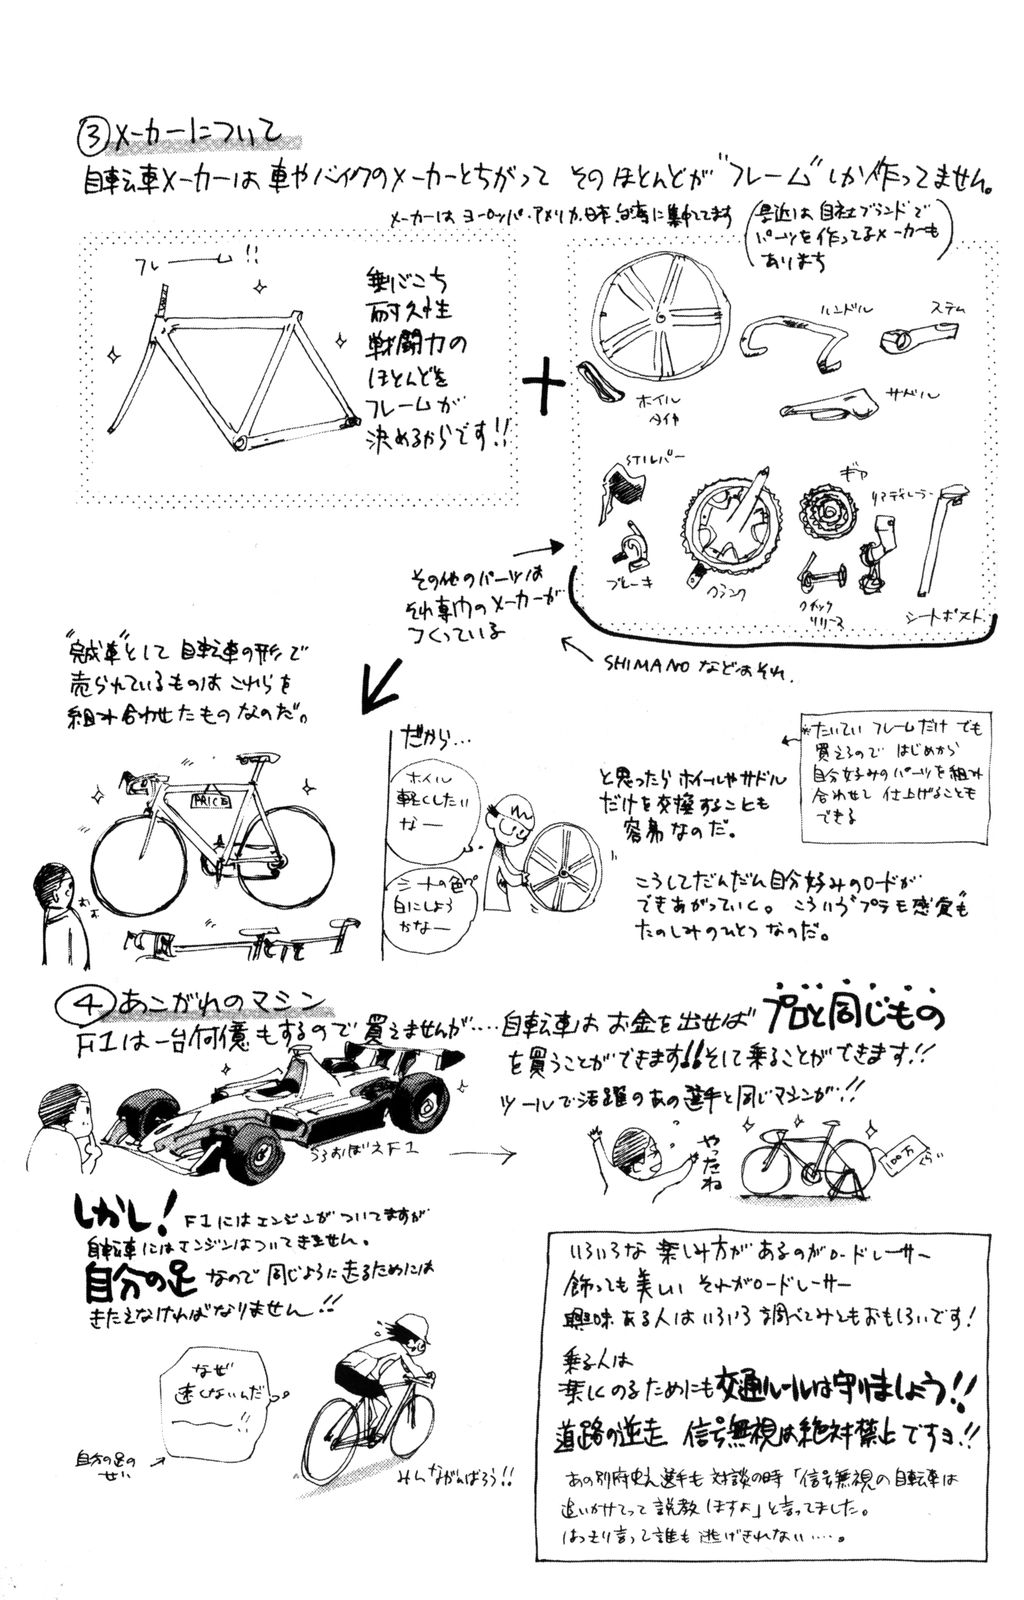 ③メーカーについて
自転車メーカーは車やバイクのメーカーとちがってそのほとんどが"フレーム"しか作ってません。
メーカーはヨーロッパ・アメリカ・日本・台湾に集中してます
(最近は自社ブランドで
パーツを作ってるメーカーも
あります)
フレーム!!
乗りごこち
耐久性
戦闘力の
ほとんどを
フレームが
決めるからです!!
+
ホイル
タイヤ
ハンドル
ステム
サドル
STIレバー
ギヤ
リアディレーラー
ブレーキ
クランク
クイック
リリース
シートポスト
その他のパーツは
それ専門のメーカーが
つくっている
SHIMANOなどはそれ.
"完成車"として自転車の形で
売られているものはこれらを
組み合わせたものなのだ。
PRICE
だから…
ホイル
軽くしたい
なー
シートの色
白にしよう
かなー
と思ったらホイールやサドル
だけを交換することも
容易なのだ。
※たいていフレームだけでも
買えるので はじめから
自分好みのパーツを組み
合わせて仕上げることも
できる
こうしてだんだん自分好みのロードが
できあがっていく。こういう"プラモ感覚"も
たのしみのひとつなのだ。
④あこがれのマシン
F1は一台何億もするので買えませんが‥‥自転車はお金を出せばプロと同じもの
を買うことができます!!そして乗ることができます!!
ツールで活躍のあの選手と同じマシンが!!
うろおぼえF1
やったね
100万
くらい
しかし!F1にはエンジンがついてますが
自転車にはエンジンはついてきません。
自分の足なので同じように走るためには
きたえなければなりません!!
なぜ
速くないんだ
――!!
自分の足の
せい
みんながんばろう!!
いろいろな楽しみ方があるのがロードレーサー
飾っても美しい それがロードレーサー
興味ある人はいろいろ調べてみてもおもしろいです!
乗る人は
楽しくのるためにも交通ルールは守りましょう!!
道路の逆走 信号無視は絶対禁止ですヨ!!
あの別府史之選手も対談の時「信号無視の自転車は
追いかけてって説教しますよ」と言ってました。
はっきり言って誰も逃げきれない‥‥。